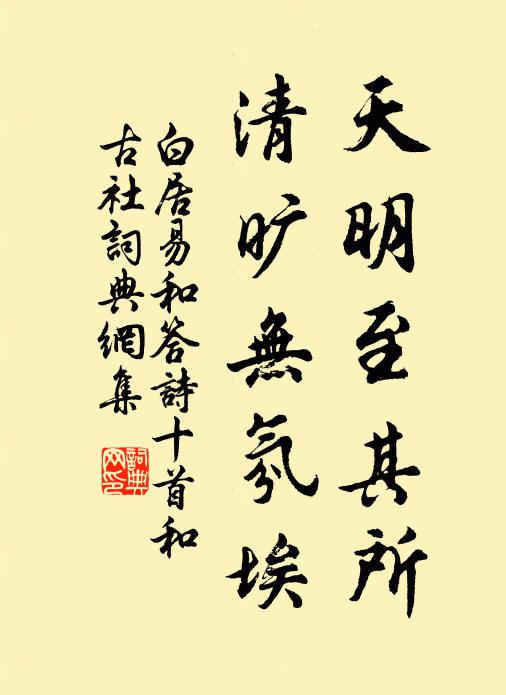 天明至其所
清旷無氛埃
白居易和答詩十首和
古社詞典網集
詞典
网印